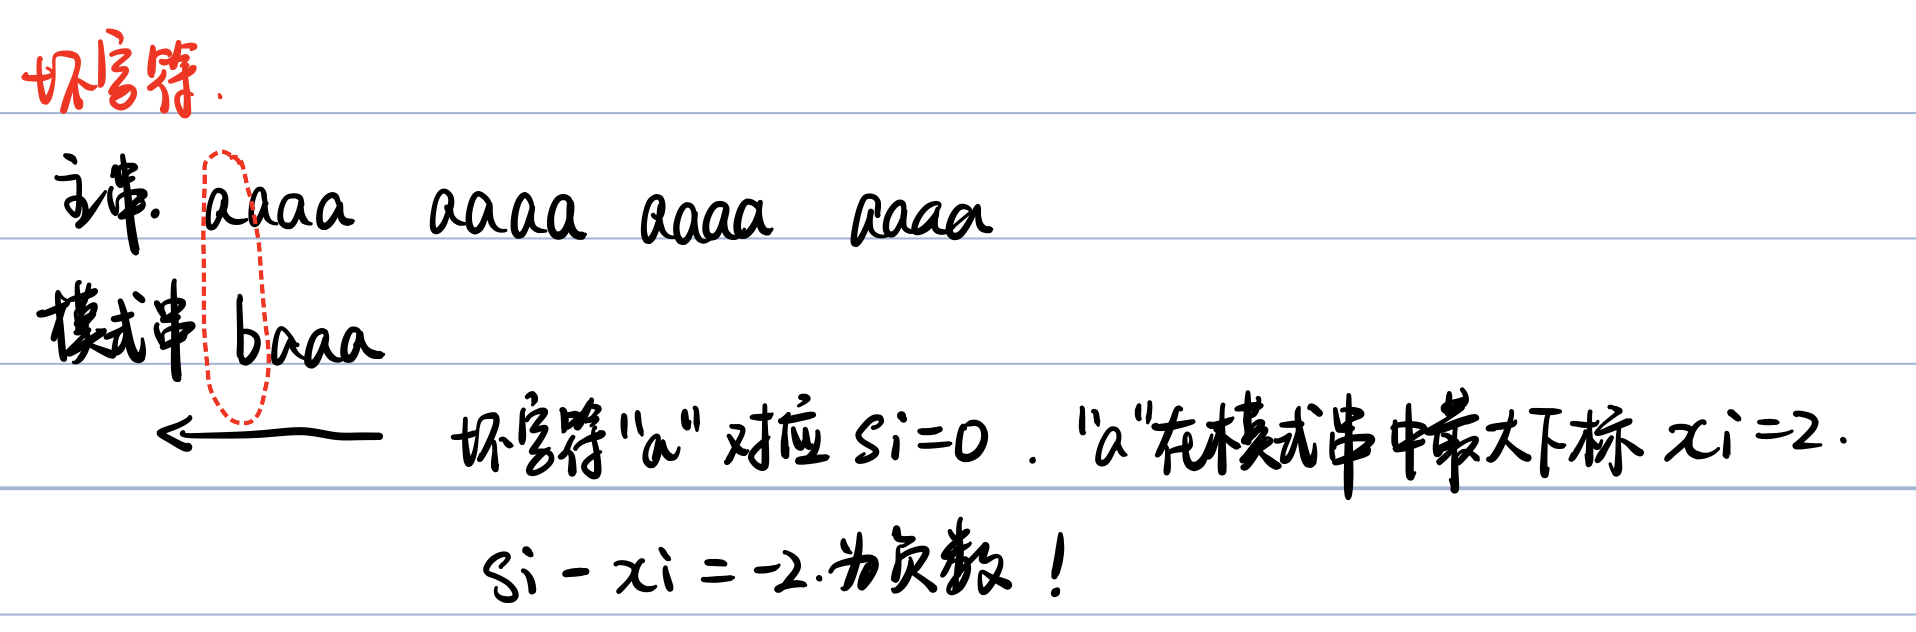 坏字符.
主串. aaaa aaaa aaaa aaaa
模式串 baaa
坏字符"a"对应 si=0 . "a"在模式串中最大下标 xi=2.
si - xi = -2. 为负数!